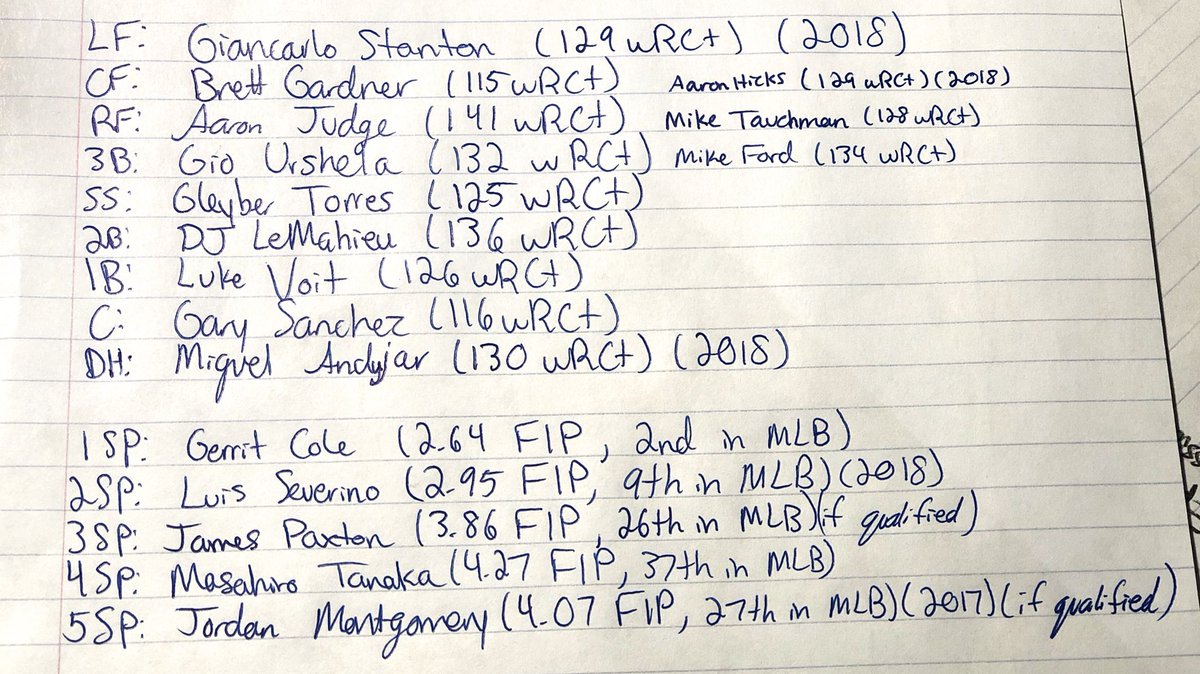 LF: Giancarlo Stanton (129 wRC+) (2018)
CF: Brett Gardner (115 wRC+) Aaron Hicks (129 wRC+) (2018)
RF: Aaron Judge (141 wRC+) Mike Tauchman (128 wRC+)
3B: Gio Urshela (132 wRC+) Mike Ford (134 wRC+)
SS: Gleyber Torres (125 wRC+)
2B: DJ LeMahieu (136 wRC+)
1B: Luke Voit (126 wRC+)
C: Gary Sanchez (116 wRC+)
DH: Miguel Andujar (130 wRC+) (2018)
1SP: Gerrit Cole (2.64 FIP, 2nd in MLB)
2SP: Luis Severino (2.95 FIP, 9th in MLB) (2018)
3SP: James Paxton (3.86 FIP, 26th in MLB) (if qualified)
4SP: Masahiro Tanaka (4.27 FIP, 37th in MLB)
5SP: Jordan Montgomery (4.07 FIP, 27th in MLB) (2017) (if qualified)